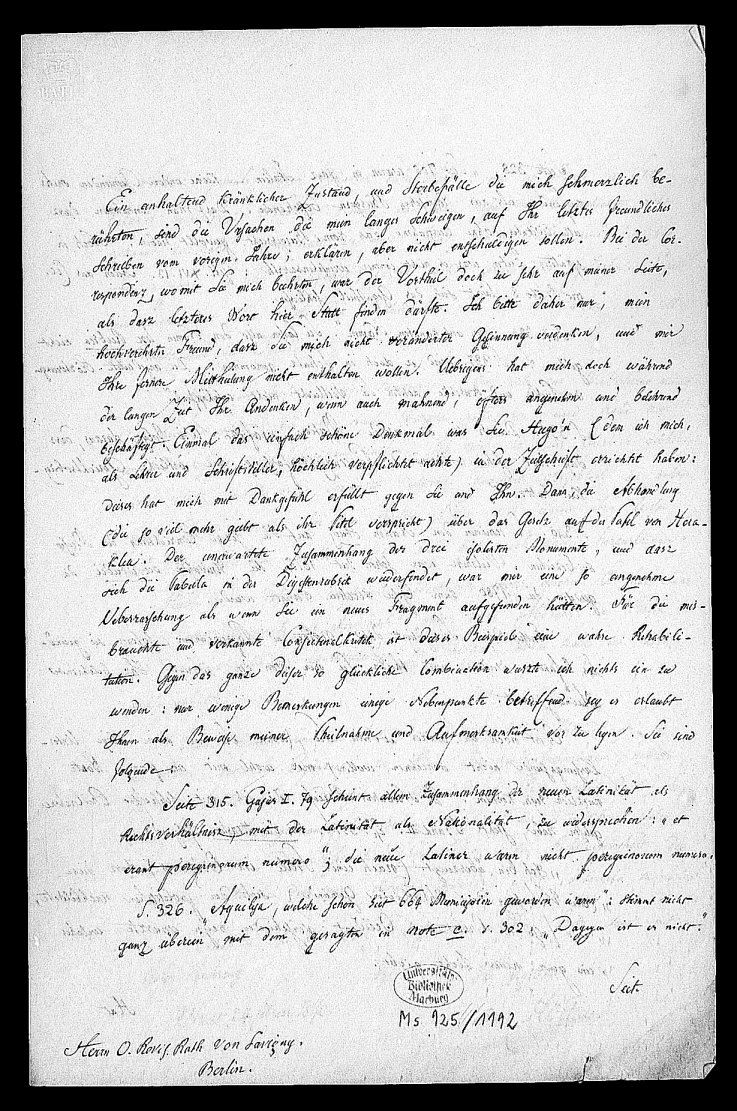 Ein anhaltend kränklicher Zustand, und Sterbefälle die mich schmerzlich be-
rührten, sind die Ursachen die mein langes Schweigen, auf Ihr letztes freundliches
Schreiben vom vorigen Jahre, erklären, aber nicht entschuldigen sollen. Bei der Cor-
respondenz, womit Sie mich beehrten, war der Vortheil doch zu sehr auf meiner Seite,
als dasz letzteres Wort hier Statt finden dürfte. Ich bitte daher nur, mein
hochverehrter Freund, dasz Sie mich nicht veränderter Gesinnung verdenken, und mir
Ihre fernere Mittheilung nicht enthalten wollen. Uebrigens hat mich doch während
der langen Zeit Ihr Andenken, wenn auch mahnend, öfters angenehm und belehrend
beschäftigt. Einmal das einfach schöne Denkmal was Sie Hugo'n (dem ich mich,
als Lehrer und Schriftsteller, höchlich verpflichtet achte) in der Zeitschrift errichtet haben:
dieses hat mich mit Dankgefühl erfüllt gegen Sie und Ihn. Dann, die Abhandlung
(die so viel mehr giebt als ihr Titel verspricht) über das Gesetz auf der Tafel von Hera-
klea. Der unerwartete Zusammenhang der drei isolirten Monumente, und dasz
sich die Tabula in der Digestenrubrik wiederfindet, war mir eine so angenehme
Ueberraschung als wenn Sie ein neues Fragment aufgefunden hätten. Für die mis-
brauchte und verkannte Conjecturalkritik ist dieses Beispiel eine wahre Rehabili-
tation. Gegen das ganze dieser so glückliche Combination wuszte ich nichts ein zu
wenden: nur wenige Bemerkungen einige Nebenpunkte betreffend sey es erlaubt
Ihnen als Beweise meiner Theilnahme und Aufmerksamkeit vor zu legen. Sie sind
folgende
Seite 315. Gajus I. 79 scheint allem Zusammenhang der neuen Latinität, als
Rechtsverhältnisz, mit der Latinität als Nationalität, zu widersprechen: "et
erant peregrinorum numero"; die neue Latiner waren nicht peregrinorum numero.
S. 326. "Aquileja, welche schon seit 664 Municipien geworden waren": stimmt nicht
ganz überein mit dem gesagten in note c. S. 302, "Dagegen ist es nicht."
Seit.
Universitäts-
Bibliothek
Marburg
Ms 925/1192
Herrn O. Revis. Rath von Savigny.
Berlin.